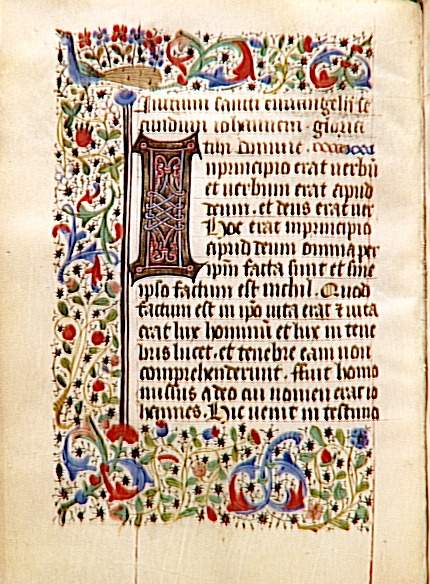 Inicium sancti euuangelij se
cundum iohannem. gloria
tibi domine.
In principio erat uerbũ
et uerbum erat apud
deum. et deus erat uer
Hoc erat in principio
apud deum omnia per
ipm̄ facta sunt et sine
ipso factum est nichil. Quod
factum est in ip̄o uita erat ⁊ uita
erat lux hominũ et lux in tene
bris lucet. et tenebre eam non
comprehenderunt. ffuit homo
missus a deo cui nomen erat io
hannes. Hic uenit in testimo